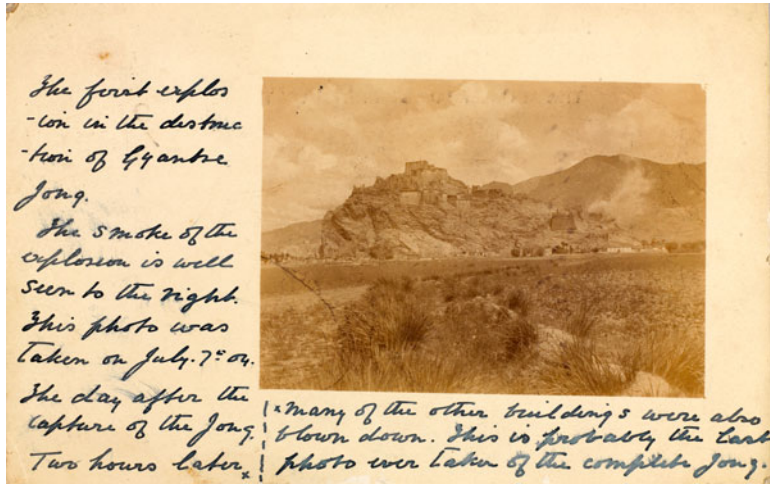 The first explos
-ion in the destruc
-tion of Gyantse
Jong.
The smoke of the
explosion is well
seen to the right.
This photo was
taken on July. 7th 04.
The day after the
capture of the Jong.
Two hours later x
x many of the other buildings were also
blown down. This is probably the last
photo ever taken of the complete Jong.